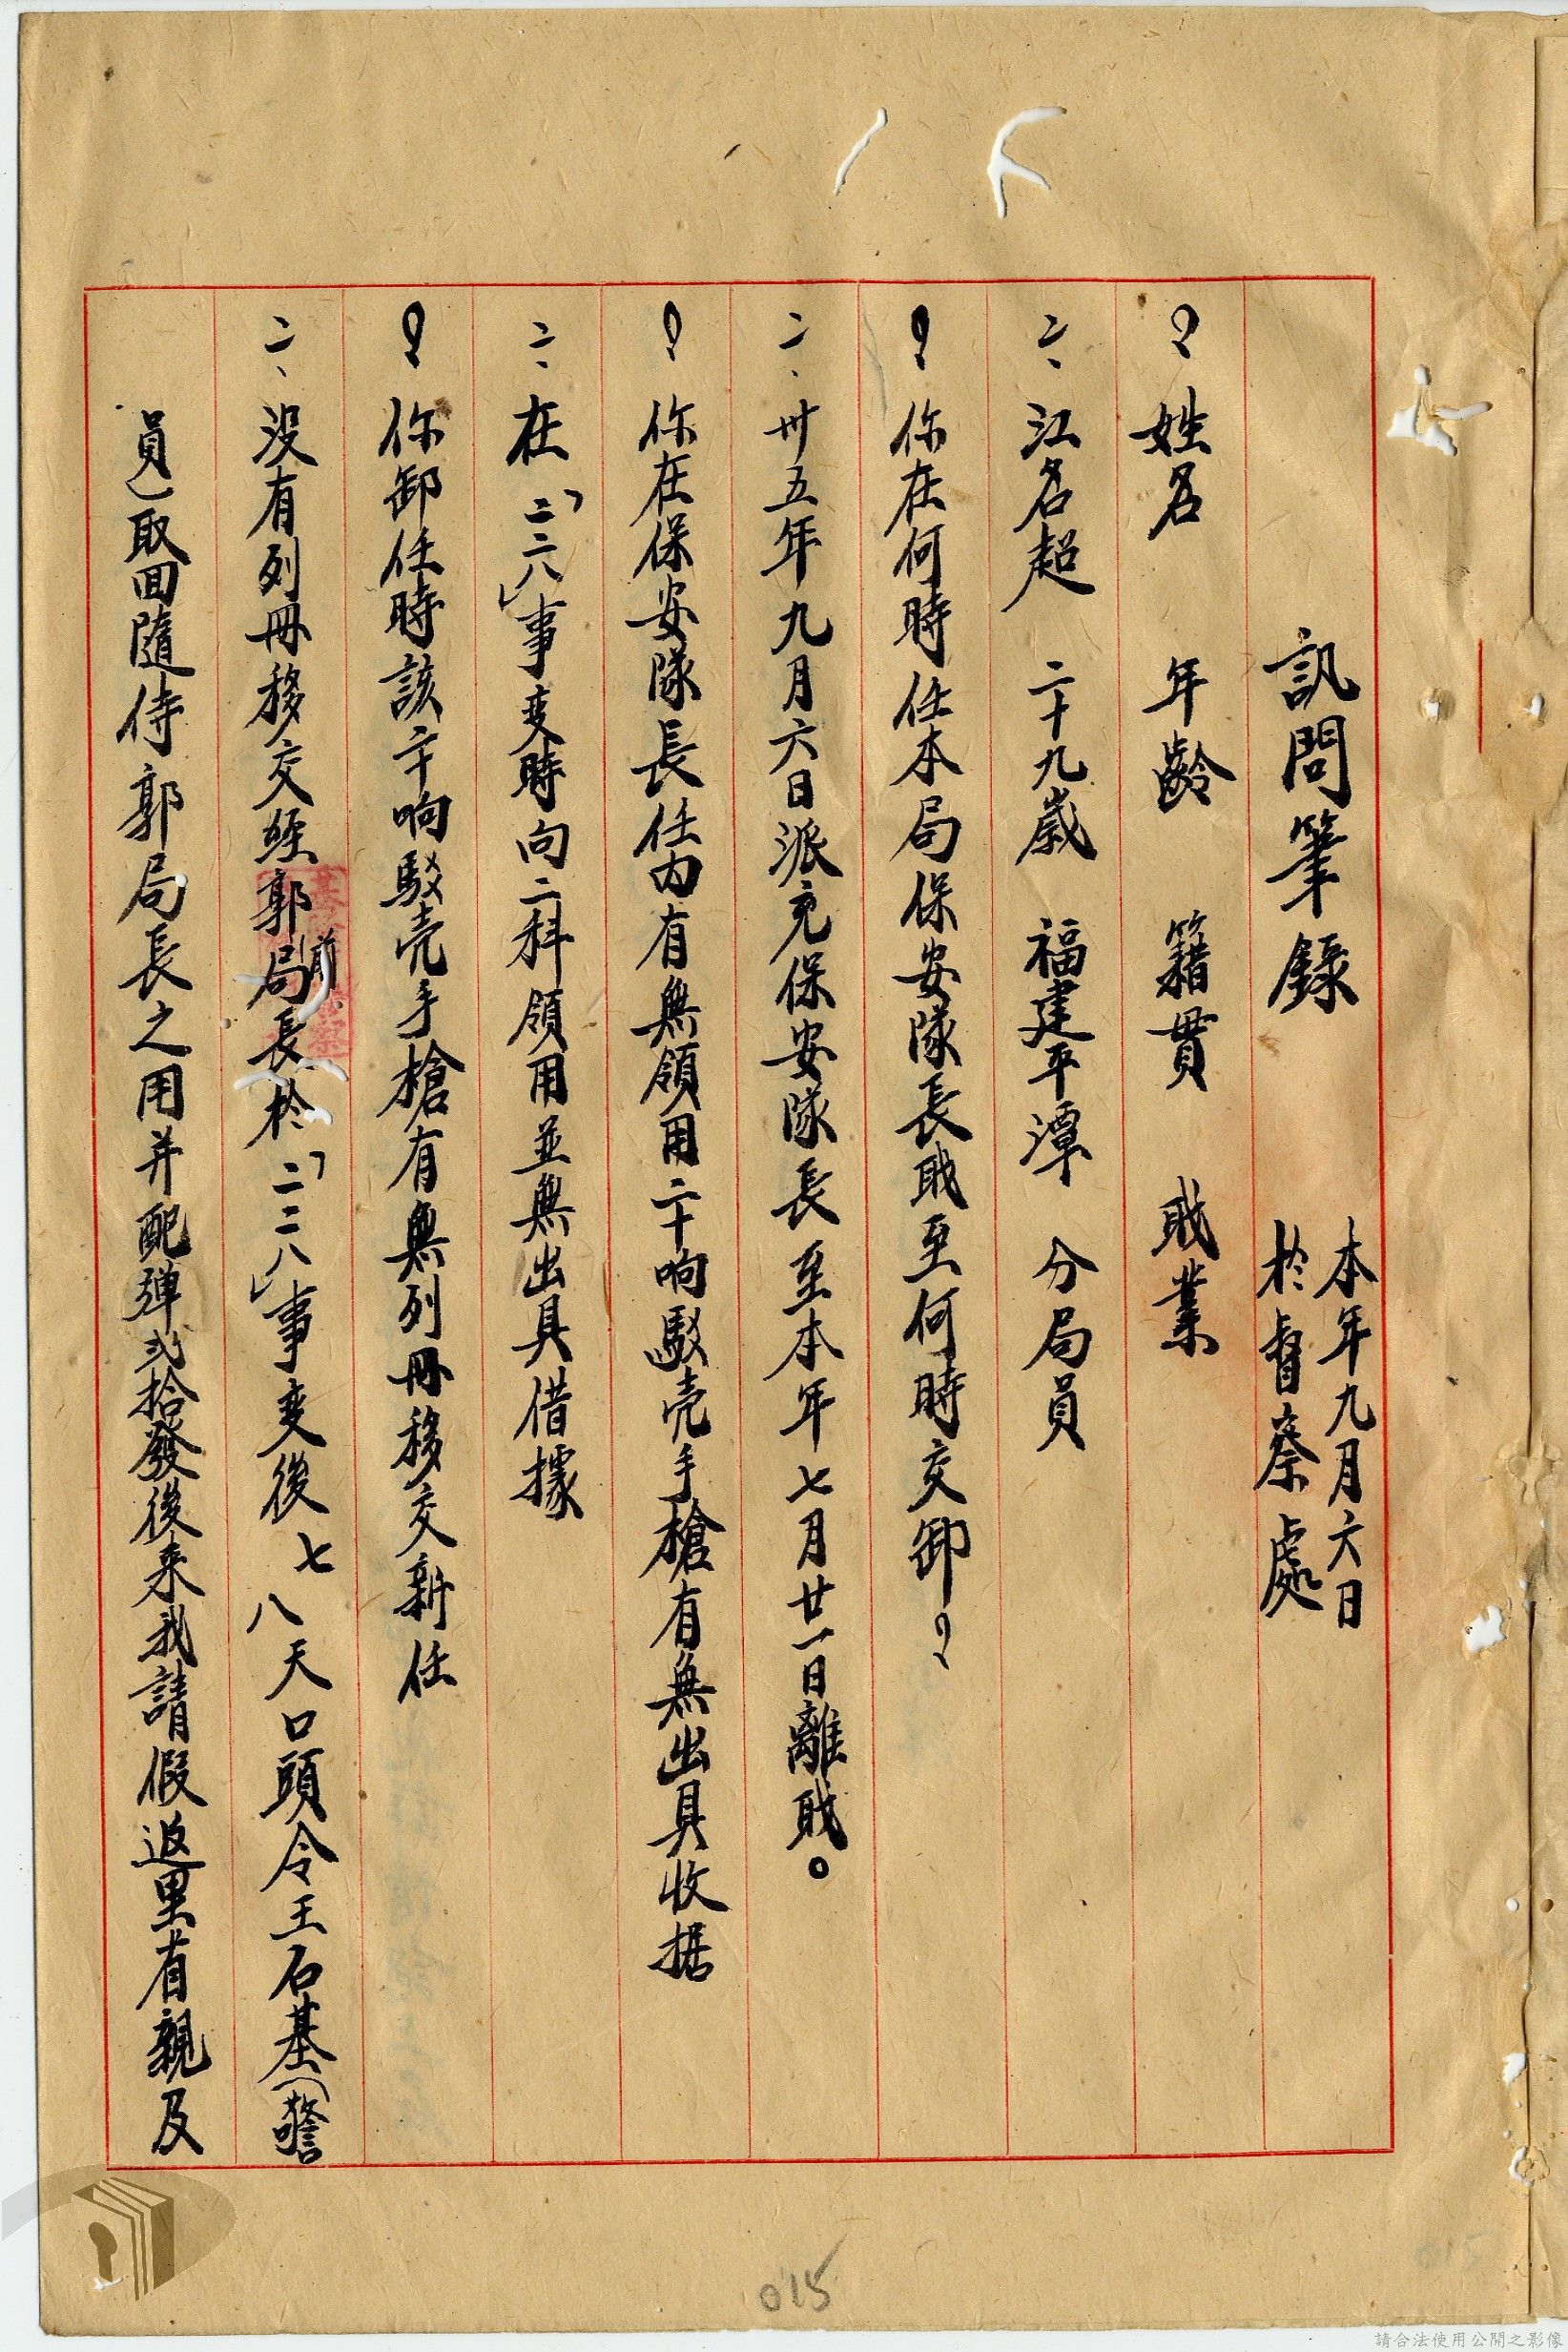 訊問筆錄
本年九月六日
於督察處
?姓名 年齡 籍貫 戝業
二、江名超 二十九歲 福建平潭 分局員
?你在何時任本局保安隊長戝至何時交卸?
二、卅五年九月六日派充保安隊長至本年七月廿一日離戝。
?你在保安隊長任內有無領用二十响駁壳手槍有無出具收据
二、在「二二八」事变時向二科領用並無出具借據
?你卸任時該二十响駁壳手槍有無列冊移交新任
二、没有列冊移交經郭前局長於「二二八」事变後七八天口頭令王石基(警
員)取回隨侍郭局長之用并配彈弍拾發後来我請假返里省親及
015
請合法使用公開之影像